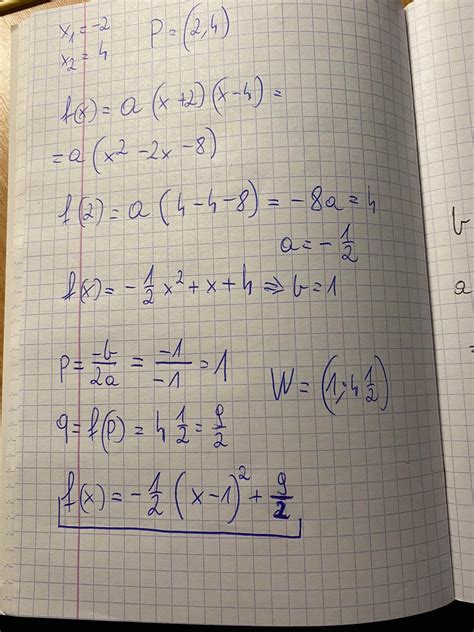 x₁ = -2
x₂ = 4
P = (2,4)
f(x) = a (x+2)(x-4) =
= a (x² - 2x - 8)
f(2) = a (4-4-8) = -8a = 4
a = -1/2
f(x) = -1/2 x² + x + 4 ⇒ b = 1
p = -b/2a = -1/-1 = 1
W = (1; 4 1/2)
q = f(p) = 4 1/2 = 9/2
f(x) = -1/2 (x-1)² + 9/2
b
a =